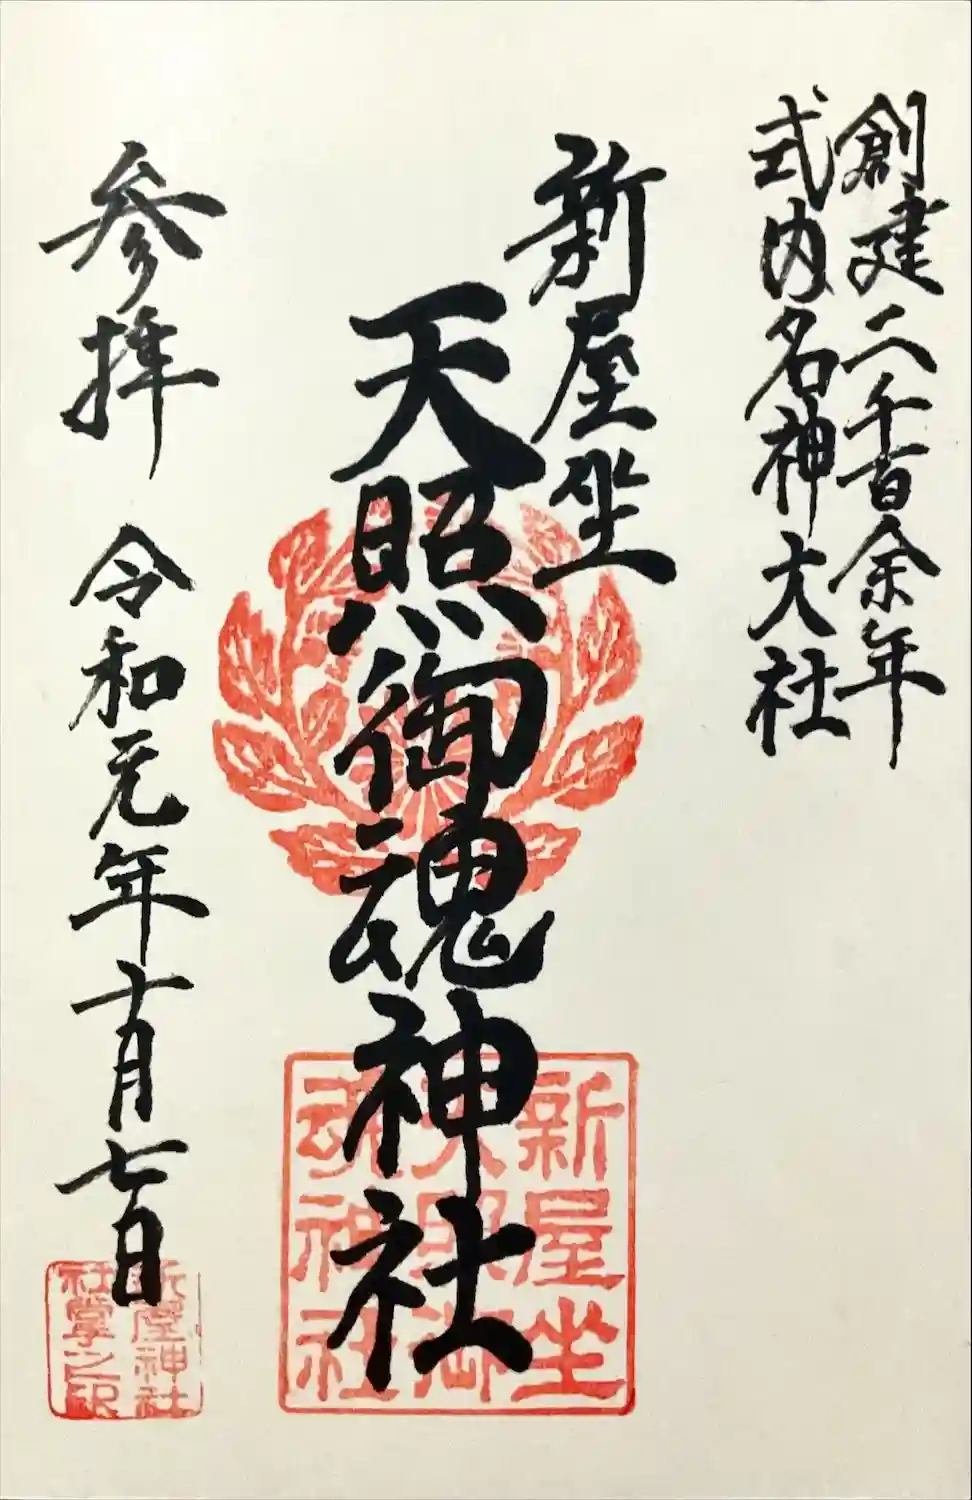 創建二千百余年
式内名神大社
新屋坐
天照御魂神社
参拝 令和元年十月七日
新屋坐
天照御
魂神社
新屋神社
社掌之印